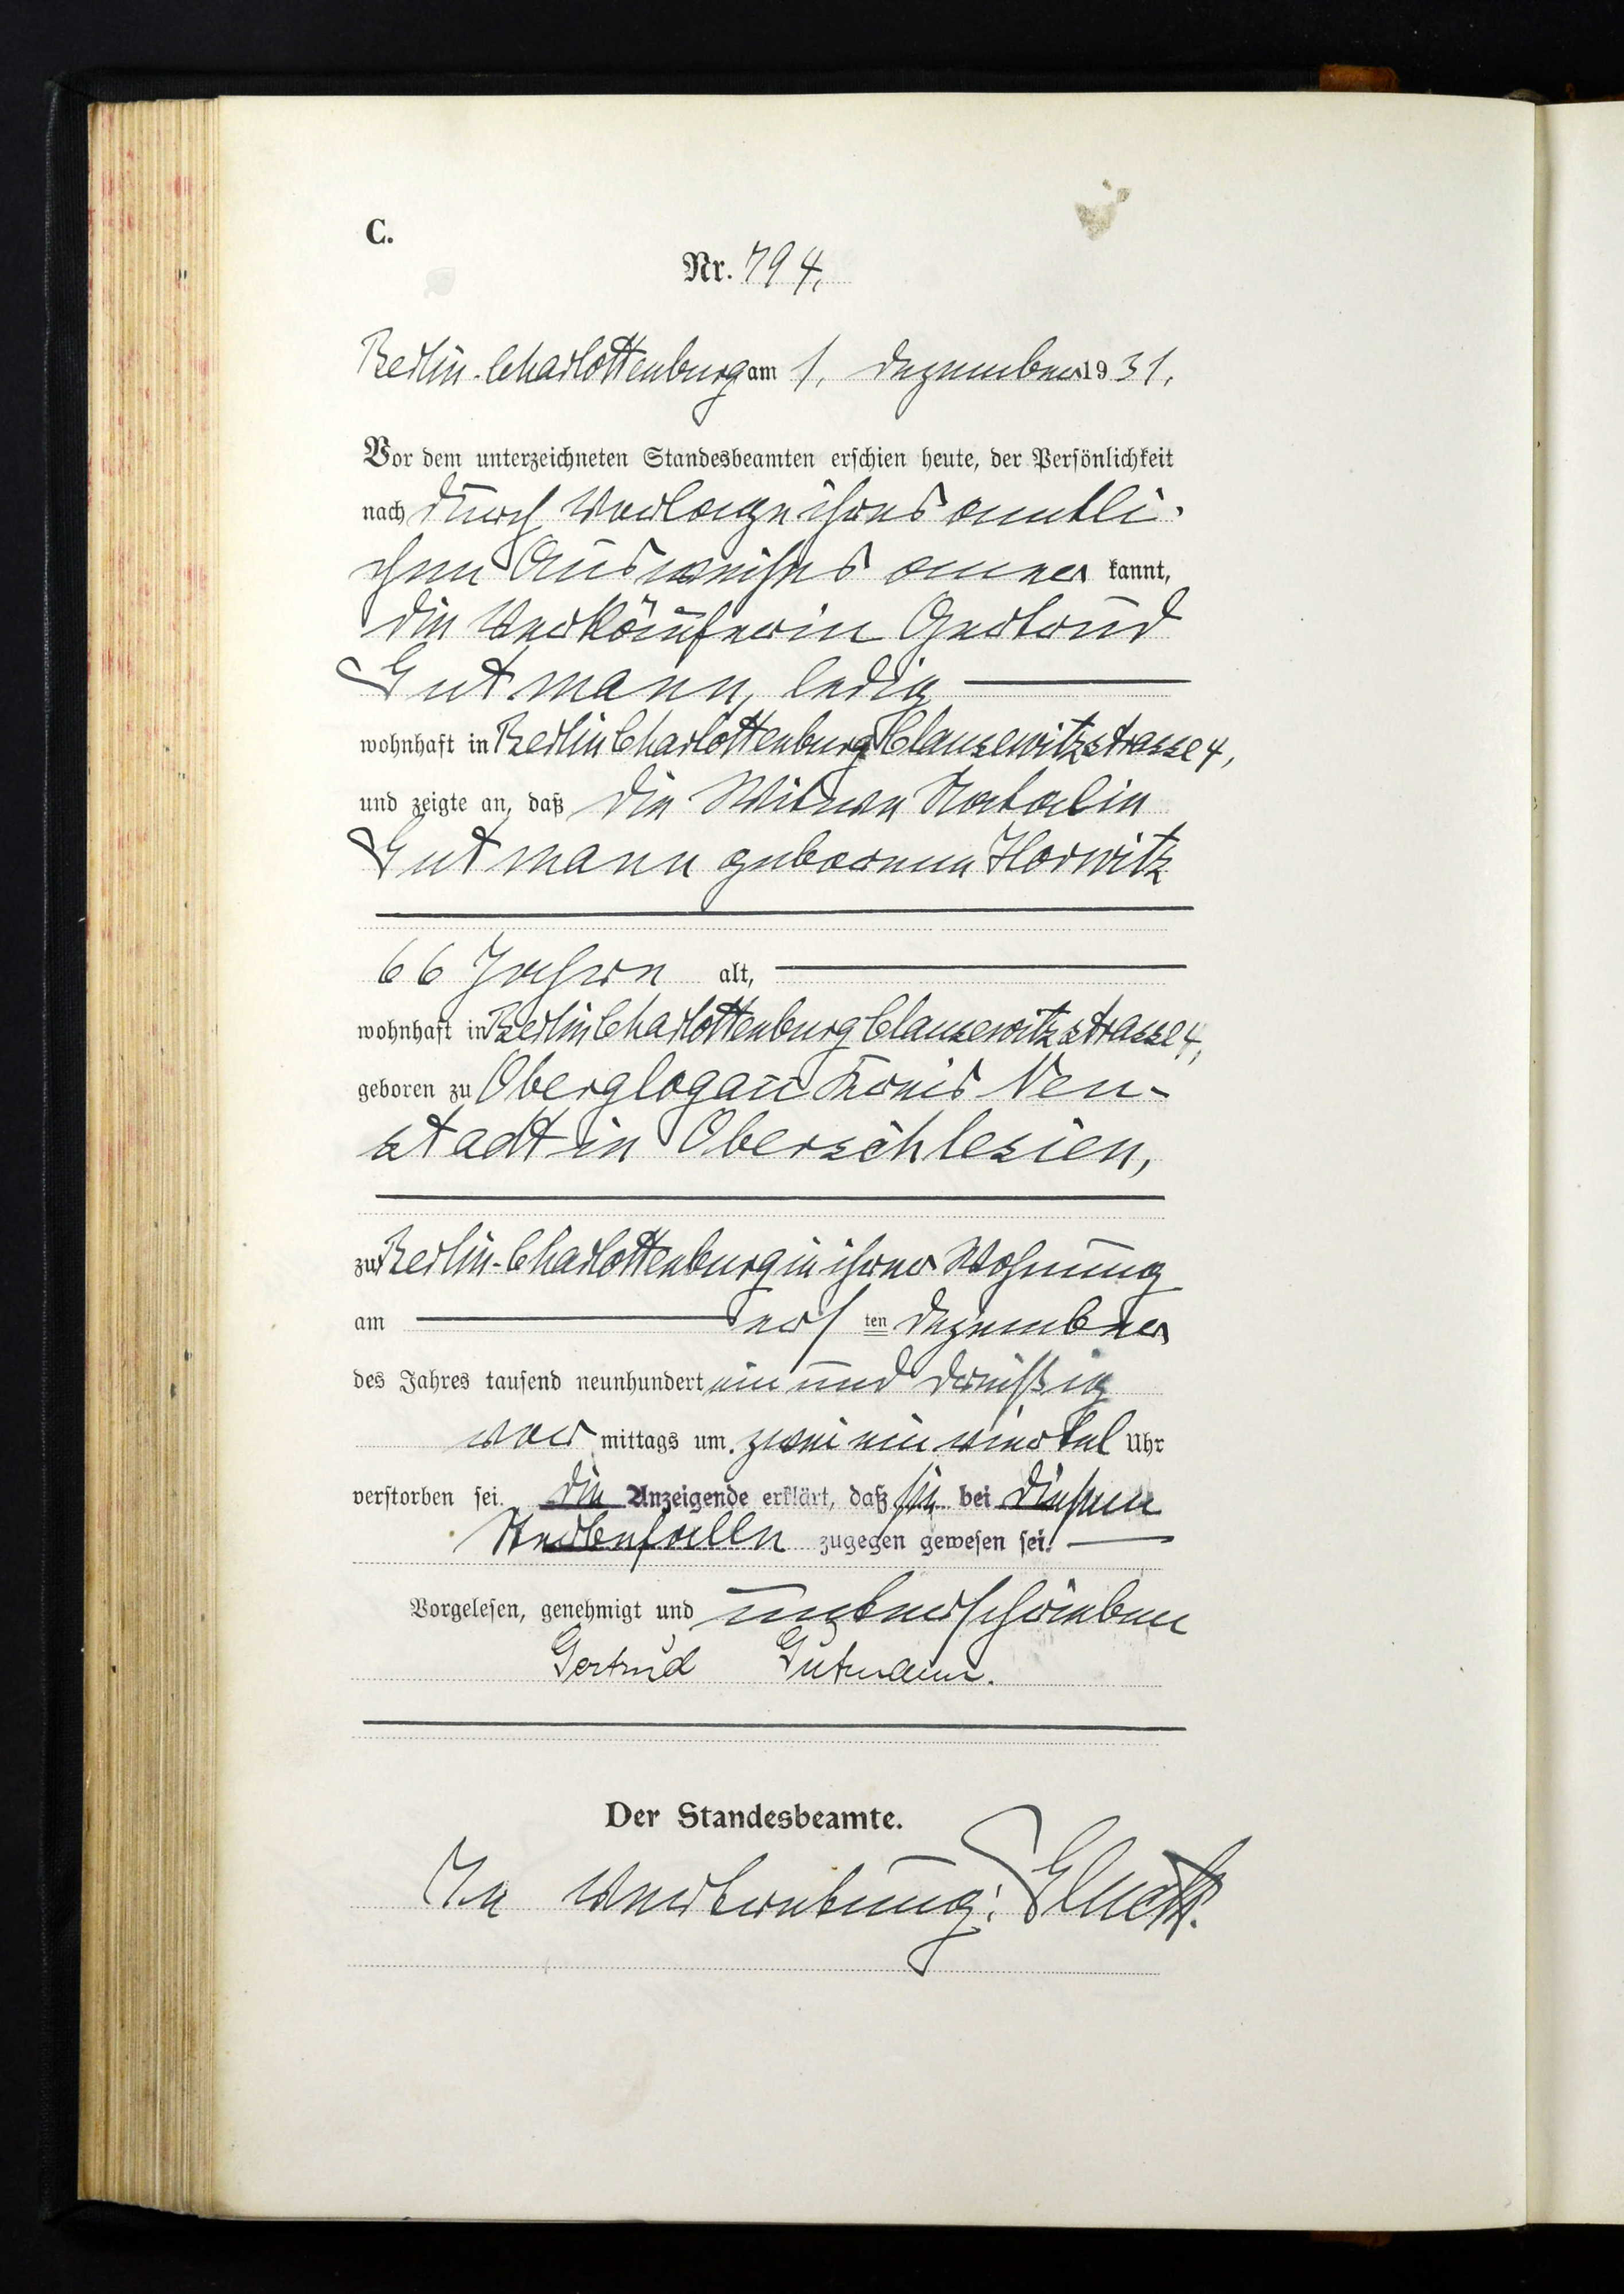 C.
Nr. 794.
Berlin-Charlottenburg am 1. Dezember 1931.
Vor dem unterzeichneten Standesbeamten erschien heute, der Persönlichkeit
nach durch Vorlage ihres amtli-
chen Ausweises aner kannt,
die Verkäuferin Gertrud
Gutmann, ledig
wohnhaft in Berlin Charlottenburg Clausewitzstrasse 4,
und zeigte an, daß die Witwe Natalie
Gutmann geborene Horwitz
66 Jahre alt,
wohnhaft in Berlin Charlottenburg Clausewitzstrasse 4,
geboren zu Oberglogau Kreis Neu-
stadt in Oberschlesien,
zu Berlin-Charlottenburg in ihrer Wohnung
am der 1 ten Dezember
des Jahres tausend neunhundert ein und dreißig
vor mittags um zwei ein viertel Uhr
verstorben sei. Die Anzeigende erklärt, daß sie bei diesem
Sterbefalle zugegen gewesen sei.
Vorgelesen, genehmigt und unterschrieben
Gertrud Gutmann.
Der Standesbeamte.
In Vertretung: